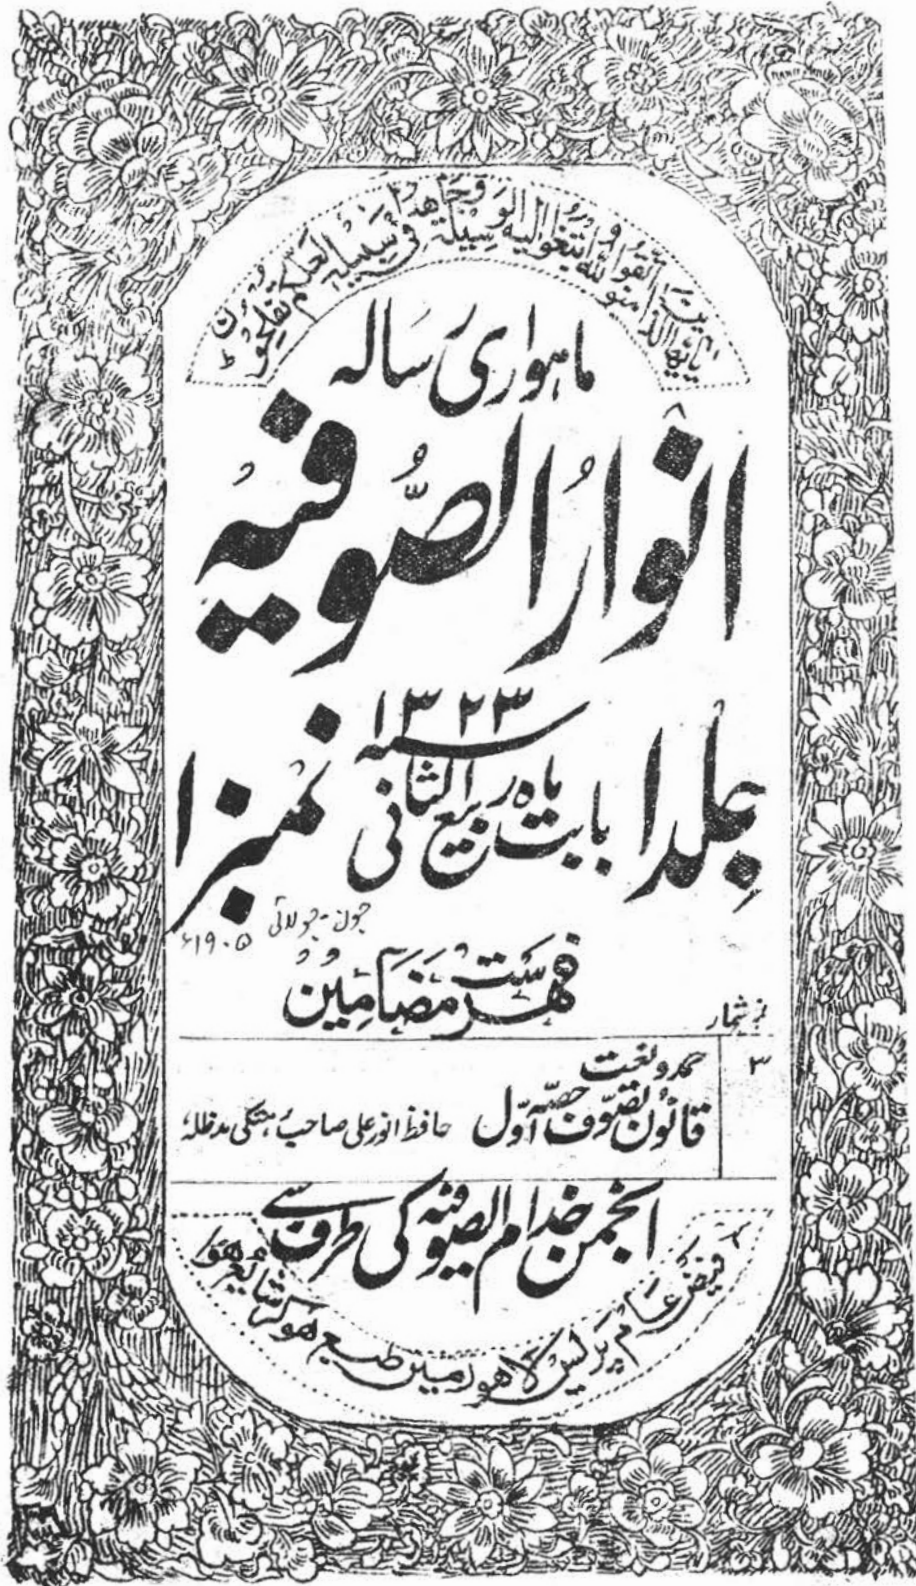 یا ایها الذین امنوا اتقوا الله وابتغوا الیه الوسیلة وجاهدوا فی سبیله لعلکم تفلحون ط
ماہواری رسالہ
انوار الصّوفیہ
جلد ۱ بابت ماہ ربیع الثانی سنہ ۱۳۲۳ نمبر ۱
جون - جولائی ۱۹۰۵ء
فہرست مضامین
نمبر شمار
۳ حمد و نعت
قانون تصوّف حصہ اوّل حافظ انور علی صاحب مدظلہ
انجمن خدام الصوفیہ کی طرف سے
فیض عام پریس لاهور مین طبع هوکر شایع هوا